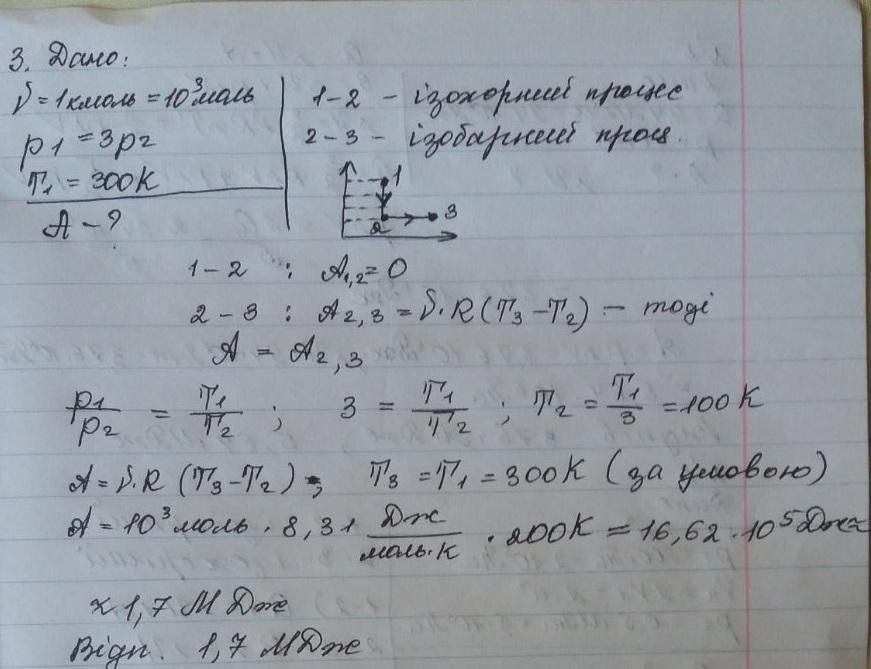 3. Дано:
ν = 1 кмоль = 10³ моль
p₁ = 3p₂
T₁ = 300K
A – ?
1-2 – ізохорний процес
2-3 – ізобарний проц.
1
2
3
1-2 : A₁,₂ = 0
2-3 : A₂,₃ = ν·R(T₃-T₂) – тоді
A = A₂,₃
p₁/p₂ = T₁/T₂ ; 3 = T₁/T₂ ; T₂ = T₁/3 = 100K
A = ν·R (T₃-T₂) ; T₃ = T₁ = 300K (за умовою)
A = 10³ моль · 8,31 Дж/моль·К · 200K = 16,62·10⁵ Дж ≈
≈ 1,7 МДж
Відп. 1,7 МДж